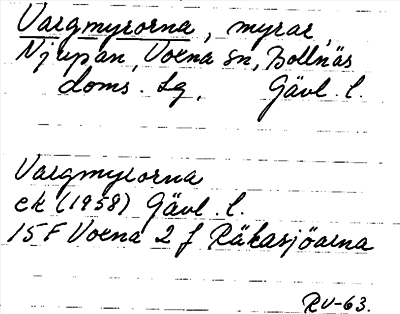 Vargmyrorna, myrar,
Njupan, Voxna sn, Bollnäs
doms. lg, Gävl. l.
Vargmyrorna
ek (1958) Gävl. l.
15F Voxna 2 f Räkasjöarna
RV-63.